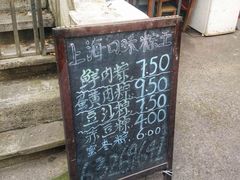 上海口味粽王
鲜肉粽 7.50
蛋黄肉粽 9.50
豆沙粽 4.50
赤豆粽 4.00
蜜枣粽 6.00